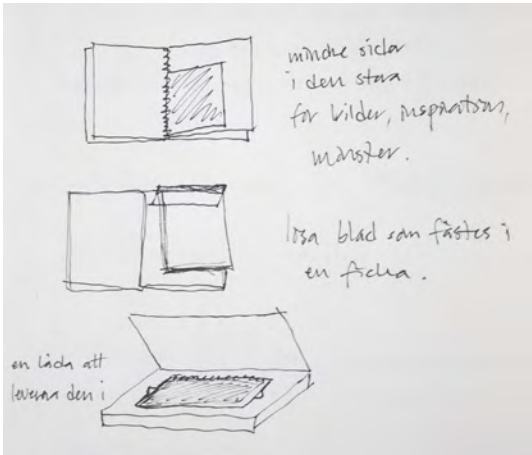 mindre sidor
i den stora
för bilder, inspiration,
mönster.
lösa blad som fästes i
en ficka.
en låda att
leverera den i